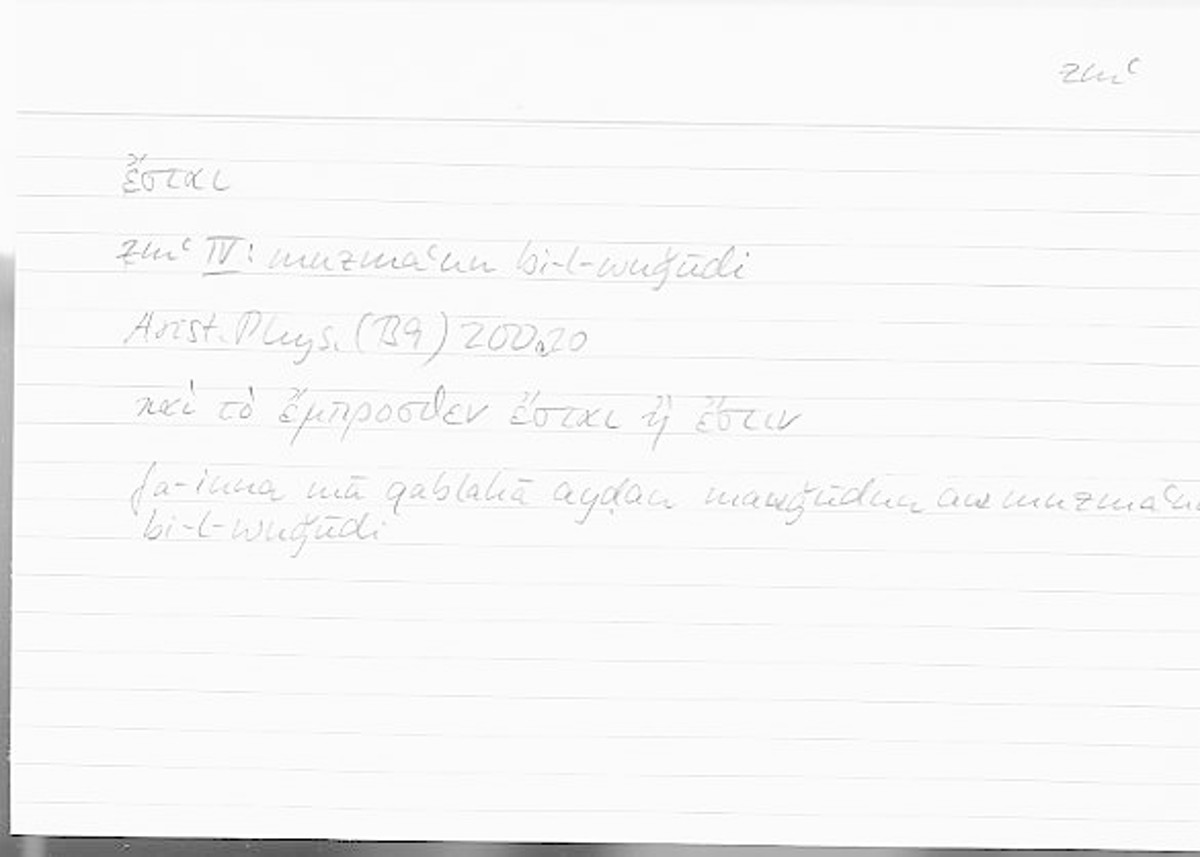 zmʿ
ἔσται
zmʿ IV: muzmaʿun bi-l-wuǧūdi
Arist. Phys. (B9) 200a20
καὶ τὸ ἔμπροσθεν ἔσται ἢ ἔστιν
fa-inna mā qablahā ayḍan mawǧūdun au muzmaʿun
bi-l-wuǧūdi